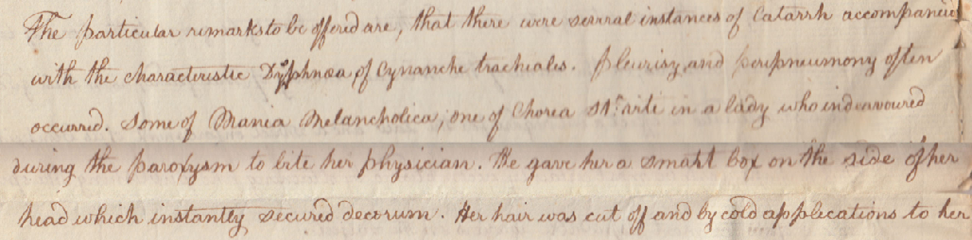 The particular remarks to be offered are, that there were several instances of Catarrh accompanied
with the characteristic Dyphnœa of Cynanche trachiales. Pleurisy and peripneumony often
occurred. Some of Mania Melancholica, one of Chorea St. viti in a lady who indeavoured
during the paroxysm to bite her physician. He gave her a smart box on the side of her
head which instantly secured decorum. Her hair was cut off and by cold applications to her